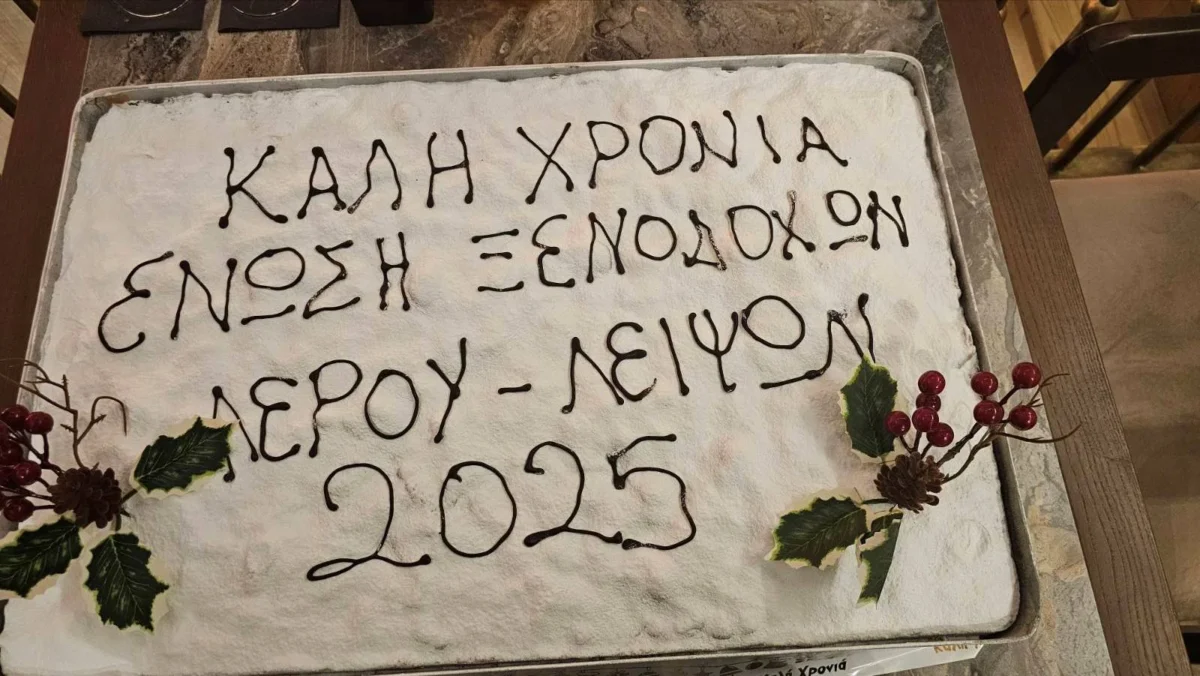 ΚΑΛΗ ΧΡΟΝΙΑ
ΕΝΩΣΗ ΞΕΝΟΔΟΧΩΝ
ΛΕΡΟΥ - ΛΕΙΨΩΝ
2025
Χρονιά